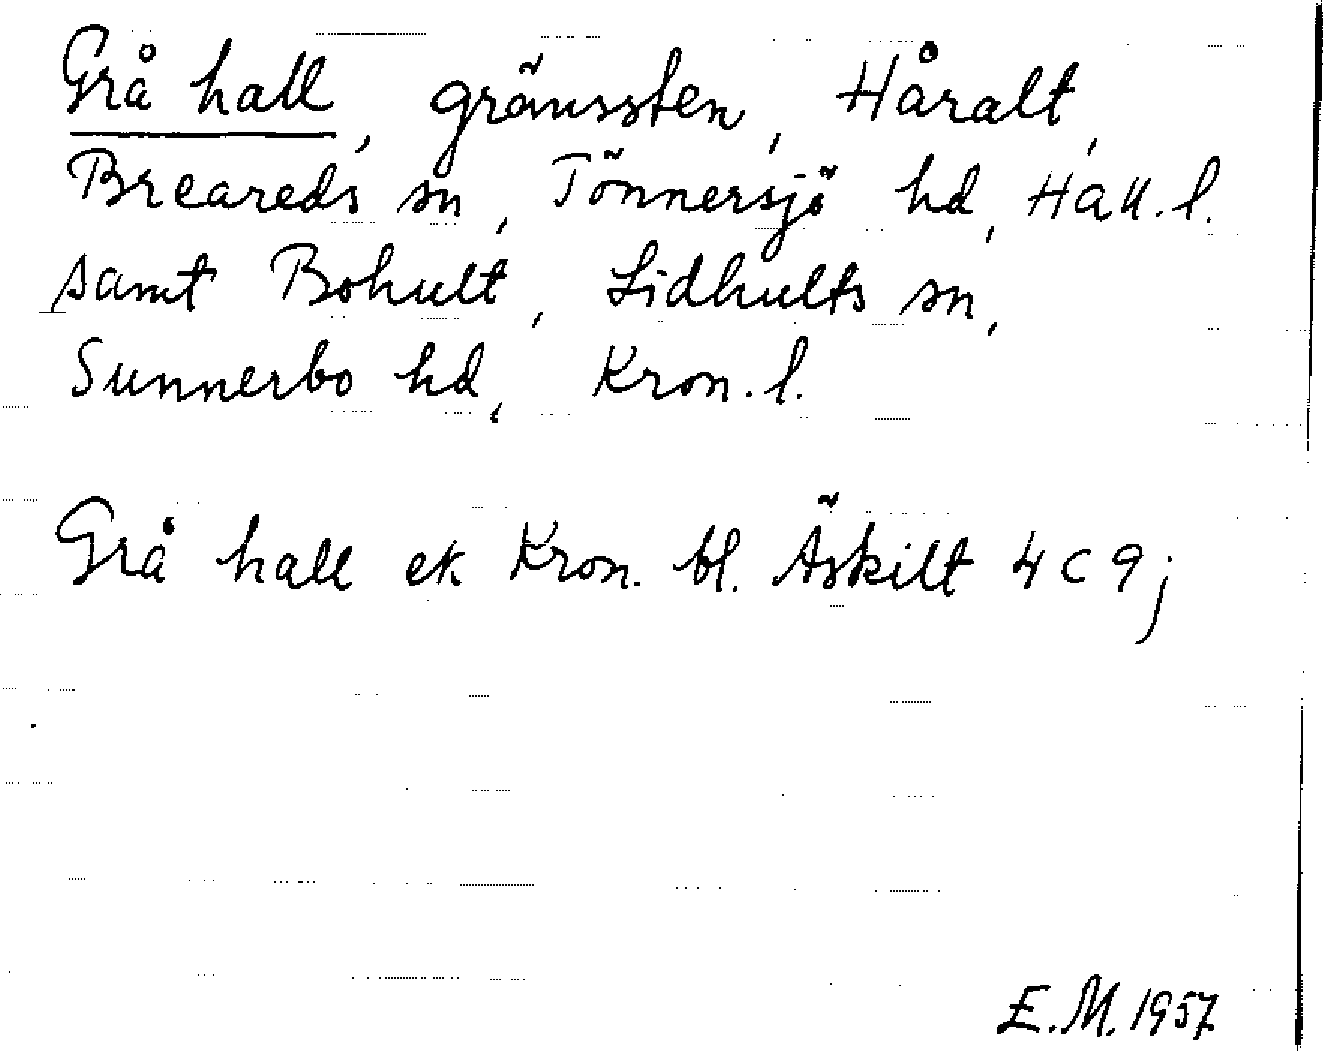 Grå hall, gränssten, Håralt,
Breareds sn, Tönnersjö hd, Hall. l.
samt Bohult, Lidhults sn,
Sunnerbo hd, Kron. l.
Grå hall ek Kron. bl. Äskilt 4 c 9 j
E. M. 1957